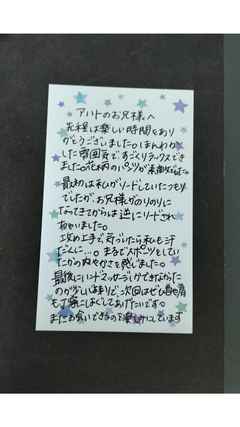 アパートのお兄様へ
先程は楽しい時間をあり
がとうございました。ほんわか
した雰囲気で、すごくリラックスでき
ました。花柄のパンツが素敵でした。
最初は私がリードしていたつもり
でしたが、お兄様がのりのりに
なってきてからは逆にリードされ
ちゃいました。
攻め上手で、気づいたら私も汗
だくに…。まるでスポーツをしてい
たかの爽やかさを感じました。
最後にハンドマッサージができなかった
のが少し心残りで、次回はぜひ首や肩
も丁寧にほぐしてあげたいです。
またお会いできるのを楽しみにしています